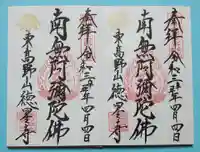 奉拝 令和三年四月四日
南無阿弥陀佛
東高野山徳星寺
奉拝 令和三年四月四日
南無阿弥陀佛
東高野山徳星寺